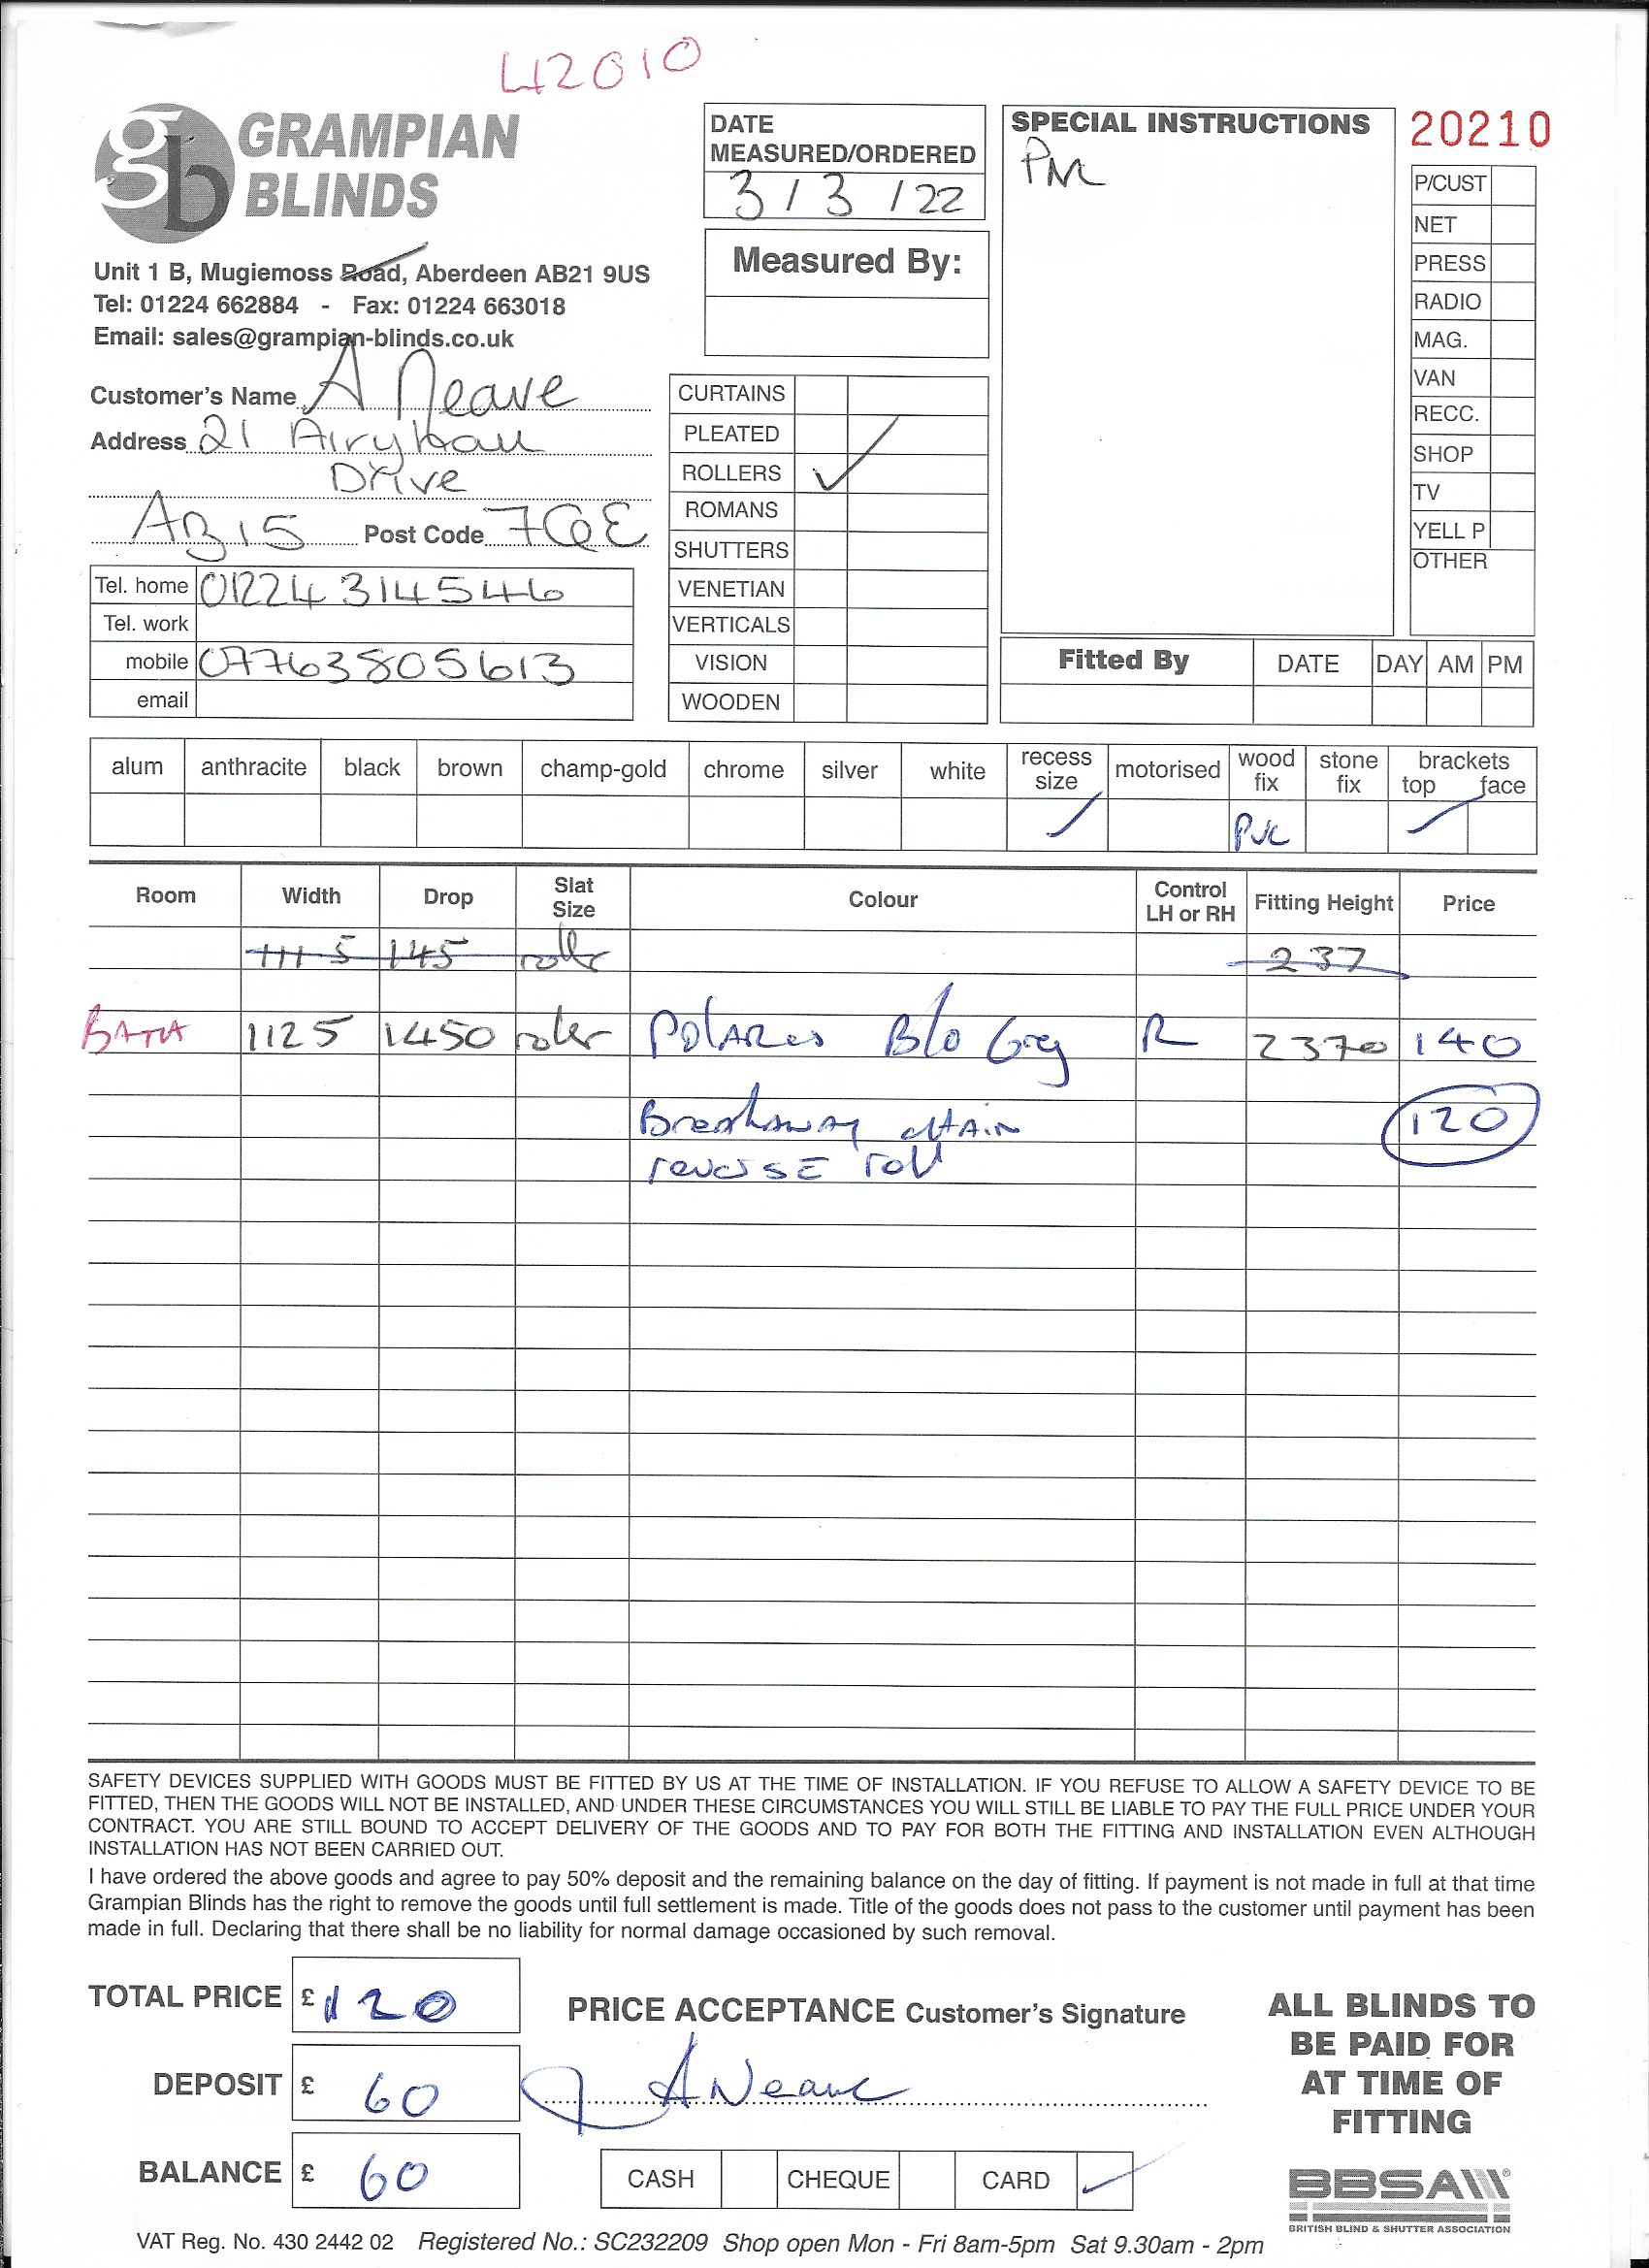 42010
GRAMPIAN
BLINDS
Unit 1 B, Mugiemoss Road, Aberdeen AB21 9US
Tel: 01224 662884 - Fax: 01224 663018
Email: sales@grampian-blinds.co.uk
Customer's Name A Neave
Address 21 Airyhall
Drive
AB15 Post Code 7QE
Tel. home 01224 314546
Tel. work
mobile 07763805613
email
DATE
MEASURED/ORDERED
3 / 3 / 22
Measured By:
CURTAINS
PLEATED
ROLLERS ✓
ROMANS
SHUTTERS
VENETIAN
VERTICALS
VISION
WOODEN
SPECIAL INSTRUCTIONS
PM
20210
P/CUST
NET
PRESS
RADIO
MAG.
VAN
RECC.
SHOP
TV
YELL P
OTHER
Fitted By DATE DAY AM PM
alum anthracite black brown champ-gold chrome silver white recess size motorised wood fix stone fix brackets top face
PVC
Room Width Drop Slat Size Colour Control LH or RH Fitting Height Price
111 5 145 roller 237
BATH 1125 1450 roller Polaris B/O Grey R 2370 140
Breakaway chain 120
reverse roll
SAFETY DEVICES SUPPLIED WITH GOODS MUST BE FITTED BY US AT THE TIME OF INSTALLATION. IF YOU REFUSE TO ALLOW A SAFETY DEVICE TO BE
FITTED, THEN THE GOODS WILL NOT BE INSTALLED, AND UNDER THESE CIRCUMSTANCES YOU WILL STILL BE LIABLE TO PAY THE FULL PRICE UNDER YOUR
CONTRACT. YOU ARE STILL BOUND TO ACCEPT DELIVERY OF THE GOODS AND TO PAY FOR BOTH THE FITTING AND INSTALLATION EVEN ALTHOUGH
INSTALLATION HAS NOT BEEN CARRIED OUT.
I have ordered the above goods and agree to pay 50% deposit and the remaining balance on the day of fitting. If payment is not made in full at that time
Grampian Blinds has the right to remove the goods until full settlement is made. Title of the goods does not pass to the customer until payment has been
made in full. Declaring that there shall be no liability for normal damage occasioned by such removal.
TOTAL PRICE £ 120
DEPOSIT £ 60
BALANCE £ 60
PRICE ACCEPTANCE Customer's Signature
A Neave
CASH CHEQUE CARD ✓
ALL BLINDS TO
BE PAID FOR
AT TIME OF
FITTING
BBSA
BRITISH BLIND & SHUTTER ASSOCIATION
VAT Reg. No. 430 2442 02 Registered No.: SC232209 Shop open Mon - Fri 8am-5pm Sat 9.30am - 2pm